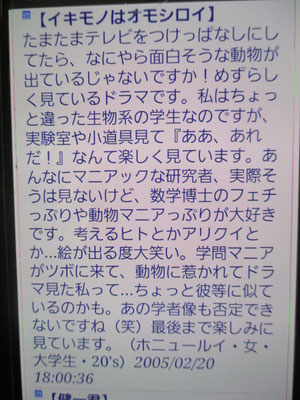 【イキモノはオモシロイ】
たまたまテレビをつけっぱなしにし
てたら、なにやら面白そうな動物が
出ているじゃないですか！めずらし
く見ているドラマです。私はちょっ
と違った生物系の学生なのですが、
実験室や小道具見て『ああ、あれ
だ！』なんて楽しく見ています。あ
んなにマニアックな研究者、実際そ
うは見ないけど、数学博士のフェチ
っぷりや動物マニアっぷりが大好き
です。考えるヒトとかアリクイと
か...絵が出る度大笑い。学問マニア
がツボに来て、動物に惹かれてドラ
マ見た私って...ちょっと彼等に似て
いるのかも。あの学者像も否定でき
ないですね（笑）最後まで楽しみに
見ています。（ホニュールイ・女・
大学生・20's）2005/02/20
18:00:36
【健一君】